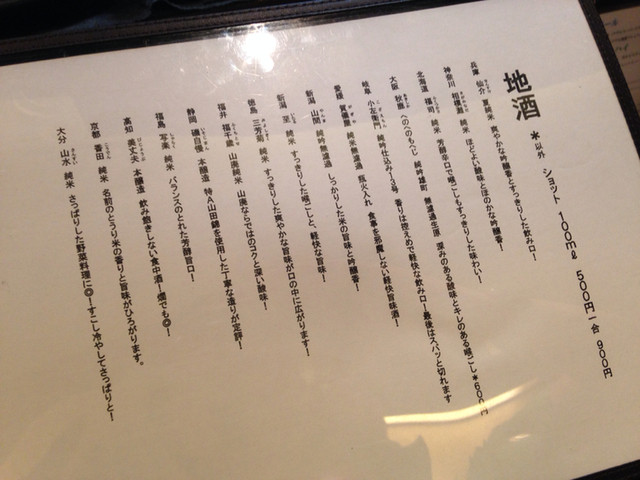 地酒
＊以外 ショット 100mℓ 500円 一合 900円
兵庫 仙介 夏純米 爽やかな吟醸香とすっきりした飲み口！
神奈川 相模灘 純米 ほどよい酸味とほのかな吟醸香！
北海道 福司 純米 芳醇辛口で喉ごしもすっきりした味わい！
大阪 秋鹿 へのへのもへじ 純吟雄町 無濾過生原 深みのある酸味とキレのある喉ごし＊600円
岐阜 小左衛門 純吟仕込み13号 香りは控えめで軽快な飲み口！最後はスパッと切れます
愛媛 賀儀屋 純米無濾過 瓶火入れ 食事を邪魔しない軽快旨味酒！
新潟 山間 純吟無濾過 しっかりした米の旨味と吟醸香！
新潟 至 純米 すっきりした喉ごしと、軽快な旨味！
徳島 三芳菊 純米 すっきりした爽やかな旨味が口の中に広がります！
福井 福千歳 山廃純米 山廃ならではのコクと深い酸味！
静岡 磯自慢 本醸造 特A山田錦を使用した丁寧な造りが定評！
福島 写楽 純米 バランスのとれた芳醇旨口！
高知 美丈夫 本醸造 飲み飽きしない食中酒！燗でも◎！
京都 香田 純米 名前のとうり米の香りと旨味がひろがります。
大分 山水 純米 さっぱりした野菜料理に◎！すこし冷やしてさっぱりと！